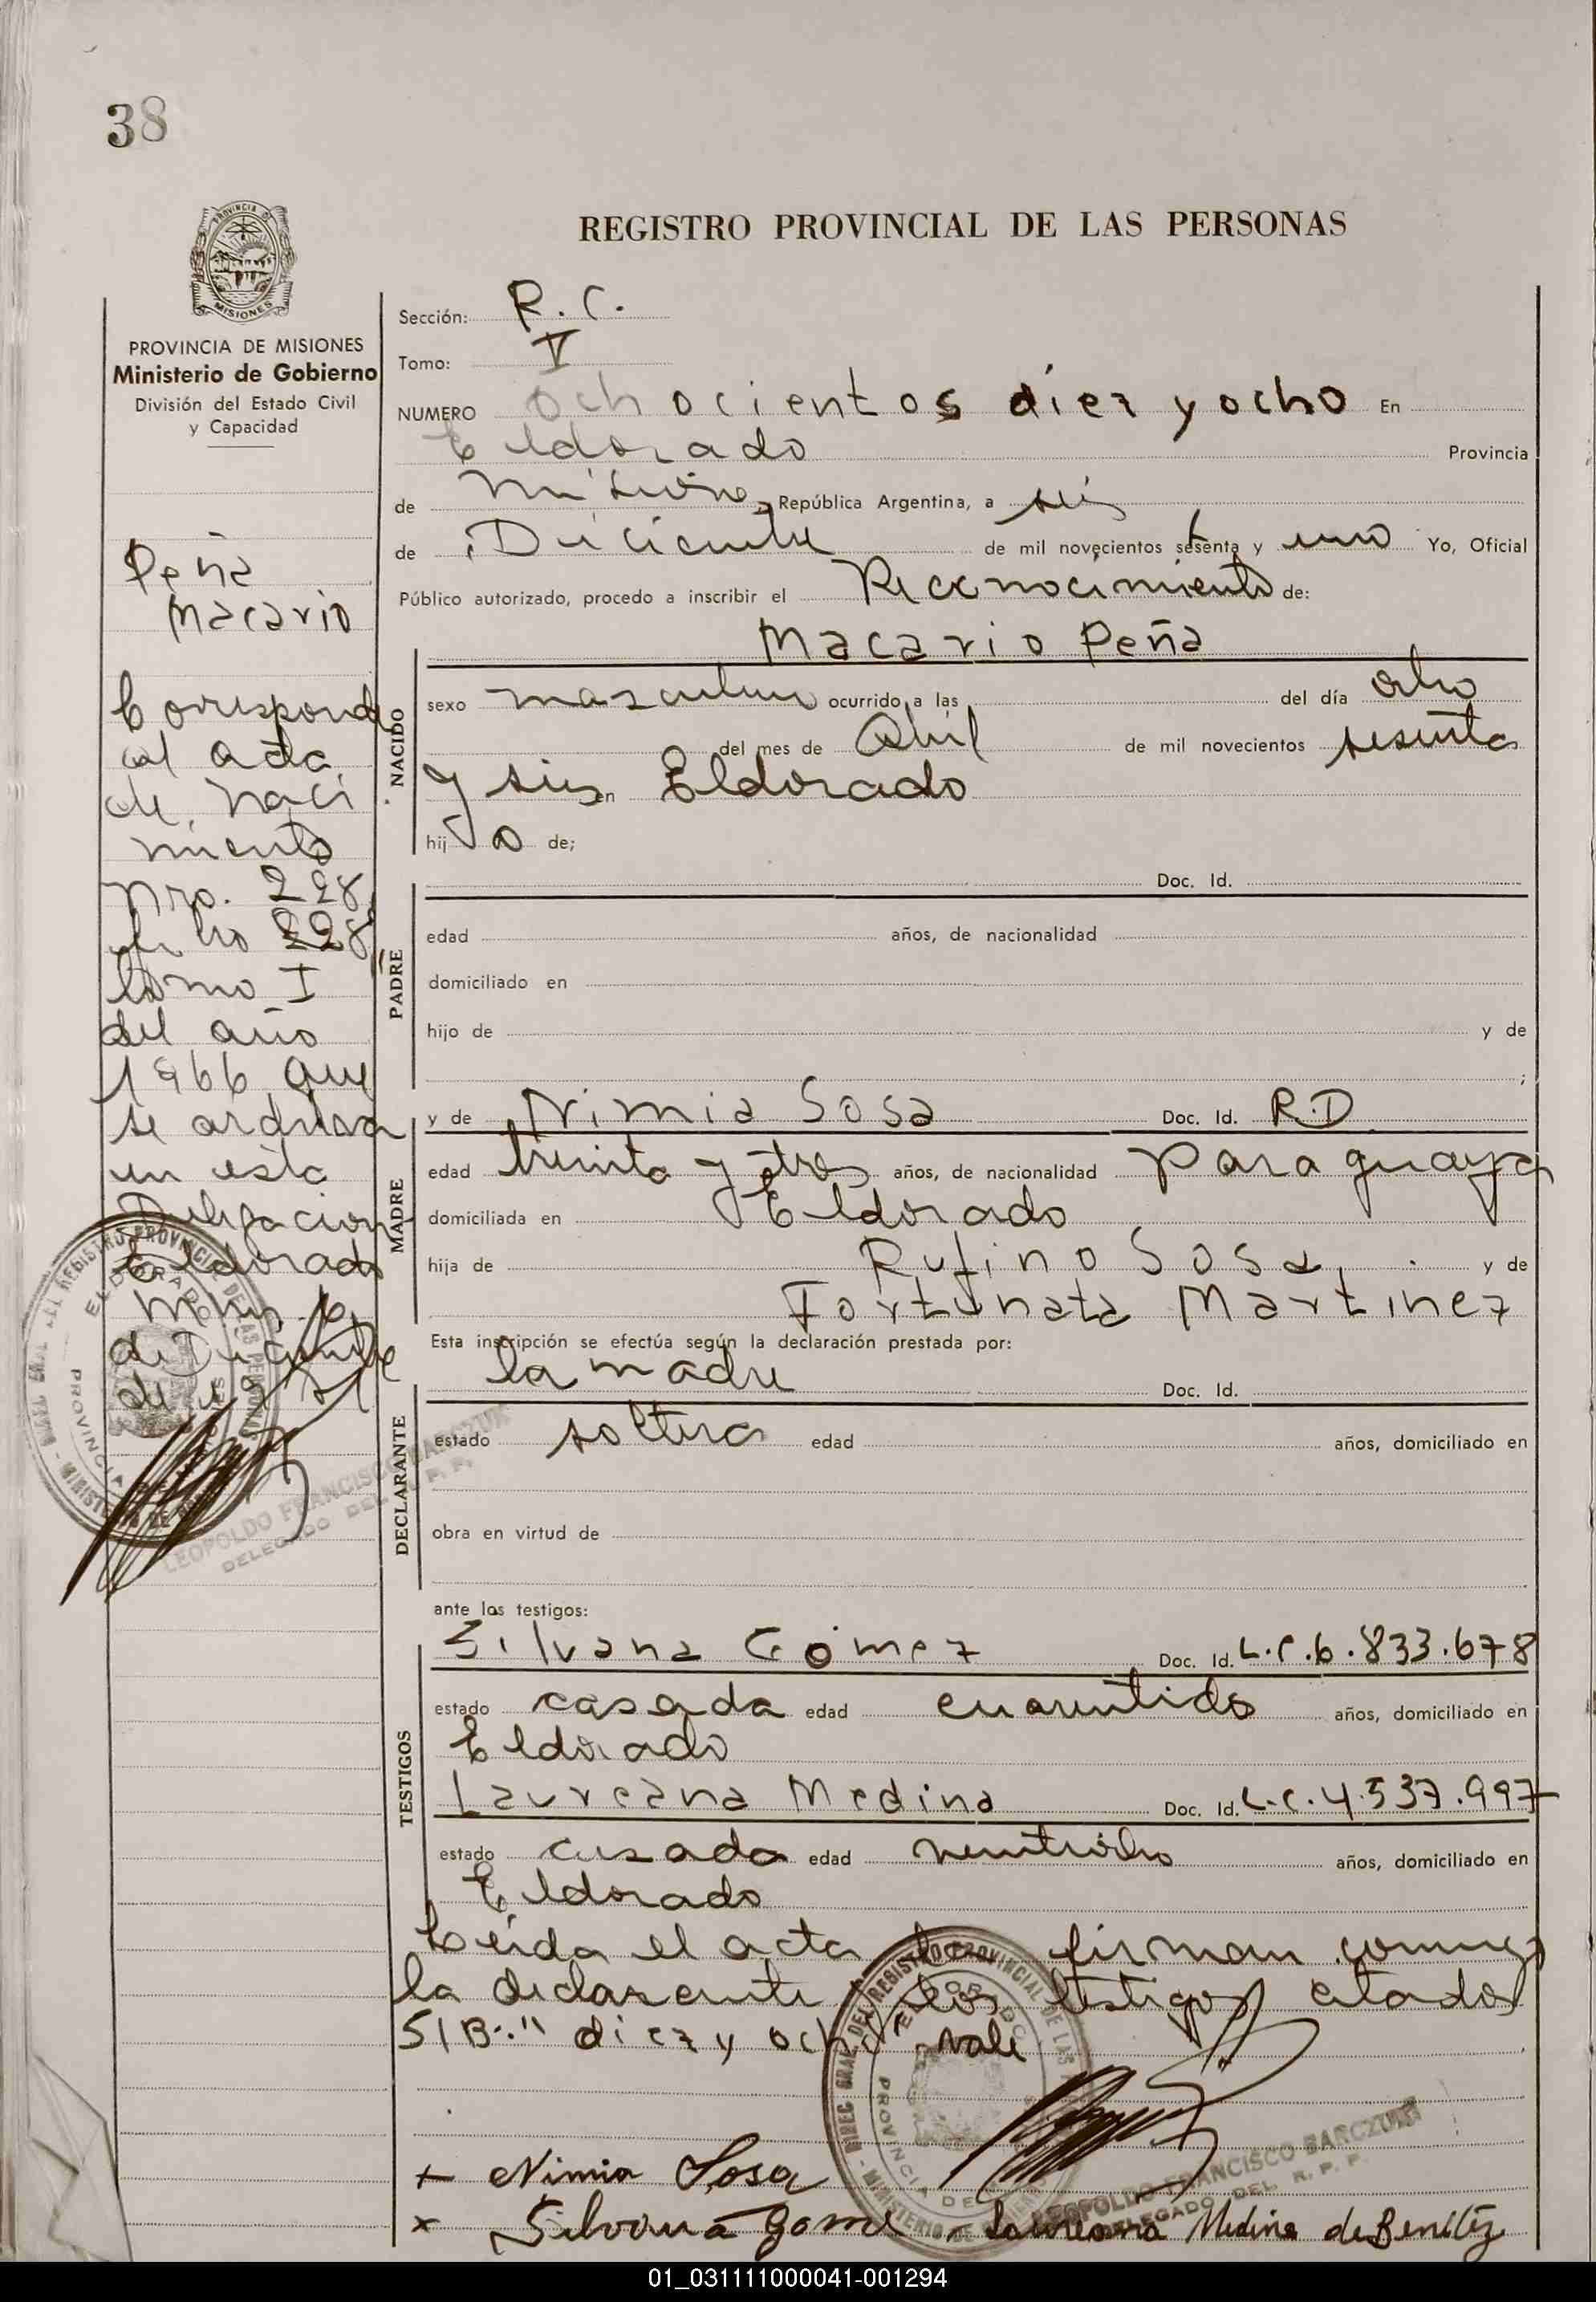 38
REGISTRO PROVINCIAL DE LAS PERSONAS
PROVINCIA DE
MISIONES
PROVINCIA DE MISIONES
Ministerio de Gobierno
División del Estado Civil
y Capacidad
Peña
Macario
Corresponde
al acta
de naci
miento
nro. 228
folio 228
tomo I
del año
1966 que
se archiva
en esta
Delegacion
Eldorado
Mnes. 6
de Diciembre
de
Sección: R.C.
Tomo: V
NUMERO ochocientos diez y ocho En
Eldorado Provincia
de Misiones, República Argentina, a seis
de Diciembre de mil novecientos sesenta y uno Yo, Oficial
Público autorizado, procedo a inscribir el Reconocimiento de:
Macario Peña
NACIDO
sexo masculino ocurrido a las del día ocho
del mes de Abril de mil novecientos sesenta
y seis en Eldorado
hijo de;
PADRE
Doc. Id.
edad años, de nacionalidad
domiciliado en
hijo de y de
;
MADRE
y de Nimia Sosa Doc. Id. R.D
edad treinta y tres años, de nacionalidad Paraguaya
domiciliada en Eldorado
hija de Rufino Sosa y de
Fortunata Martinez
Esta inscripción se efectúa según la declaración prestada por:
DECLARANTE
la madre Doc. Id.
estado soltera edad años, domiciliado en
obra en virtud de
ante los testigos:
TESTIGOS
Silvana Gómez Doc. Id. L.C. 6.833.678
estado casada edad cuarentidos años, domiciliado en
Eldorado
Laureana Medina Doc. Id. L.C. 4.537.997
estado casada edad veintiocho años, domiciliado en
Eldorado
Leida el acta la firman conmigo
la declarante y los testigos citados
S/B:" diez y ocho" vale
LEOPOLDO FRANCISCO BARCZUK
DELEGADO DEL R. P. P.
DIREC. GRAL. DEL REGISTRO PROVINCIAL DE LAS PERSONAS
ELDORADO
LEOPOLDO FRANCISCO BARCZUK
DELEGADO DEL R. P. P.
+ Nimia Sosa
x Silvana Gome Laureana Medina de Benítez
01_031111000041-001294